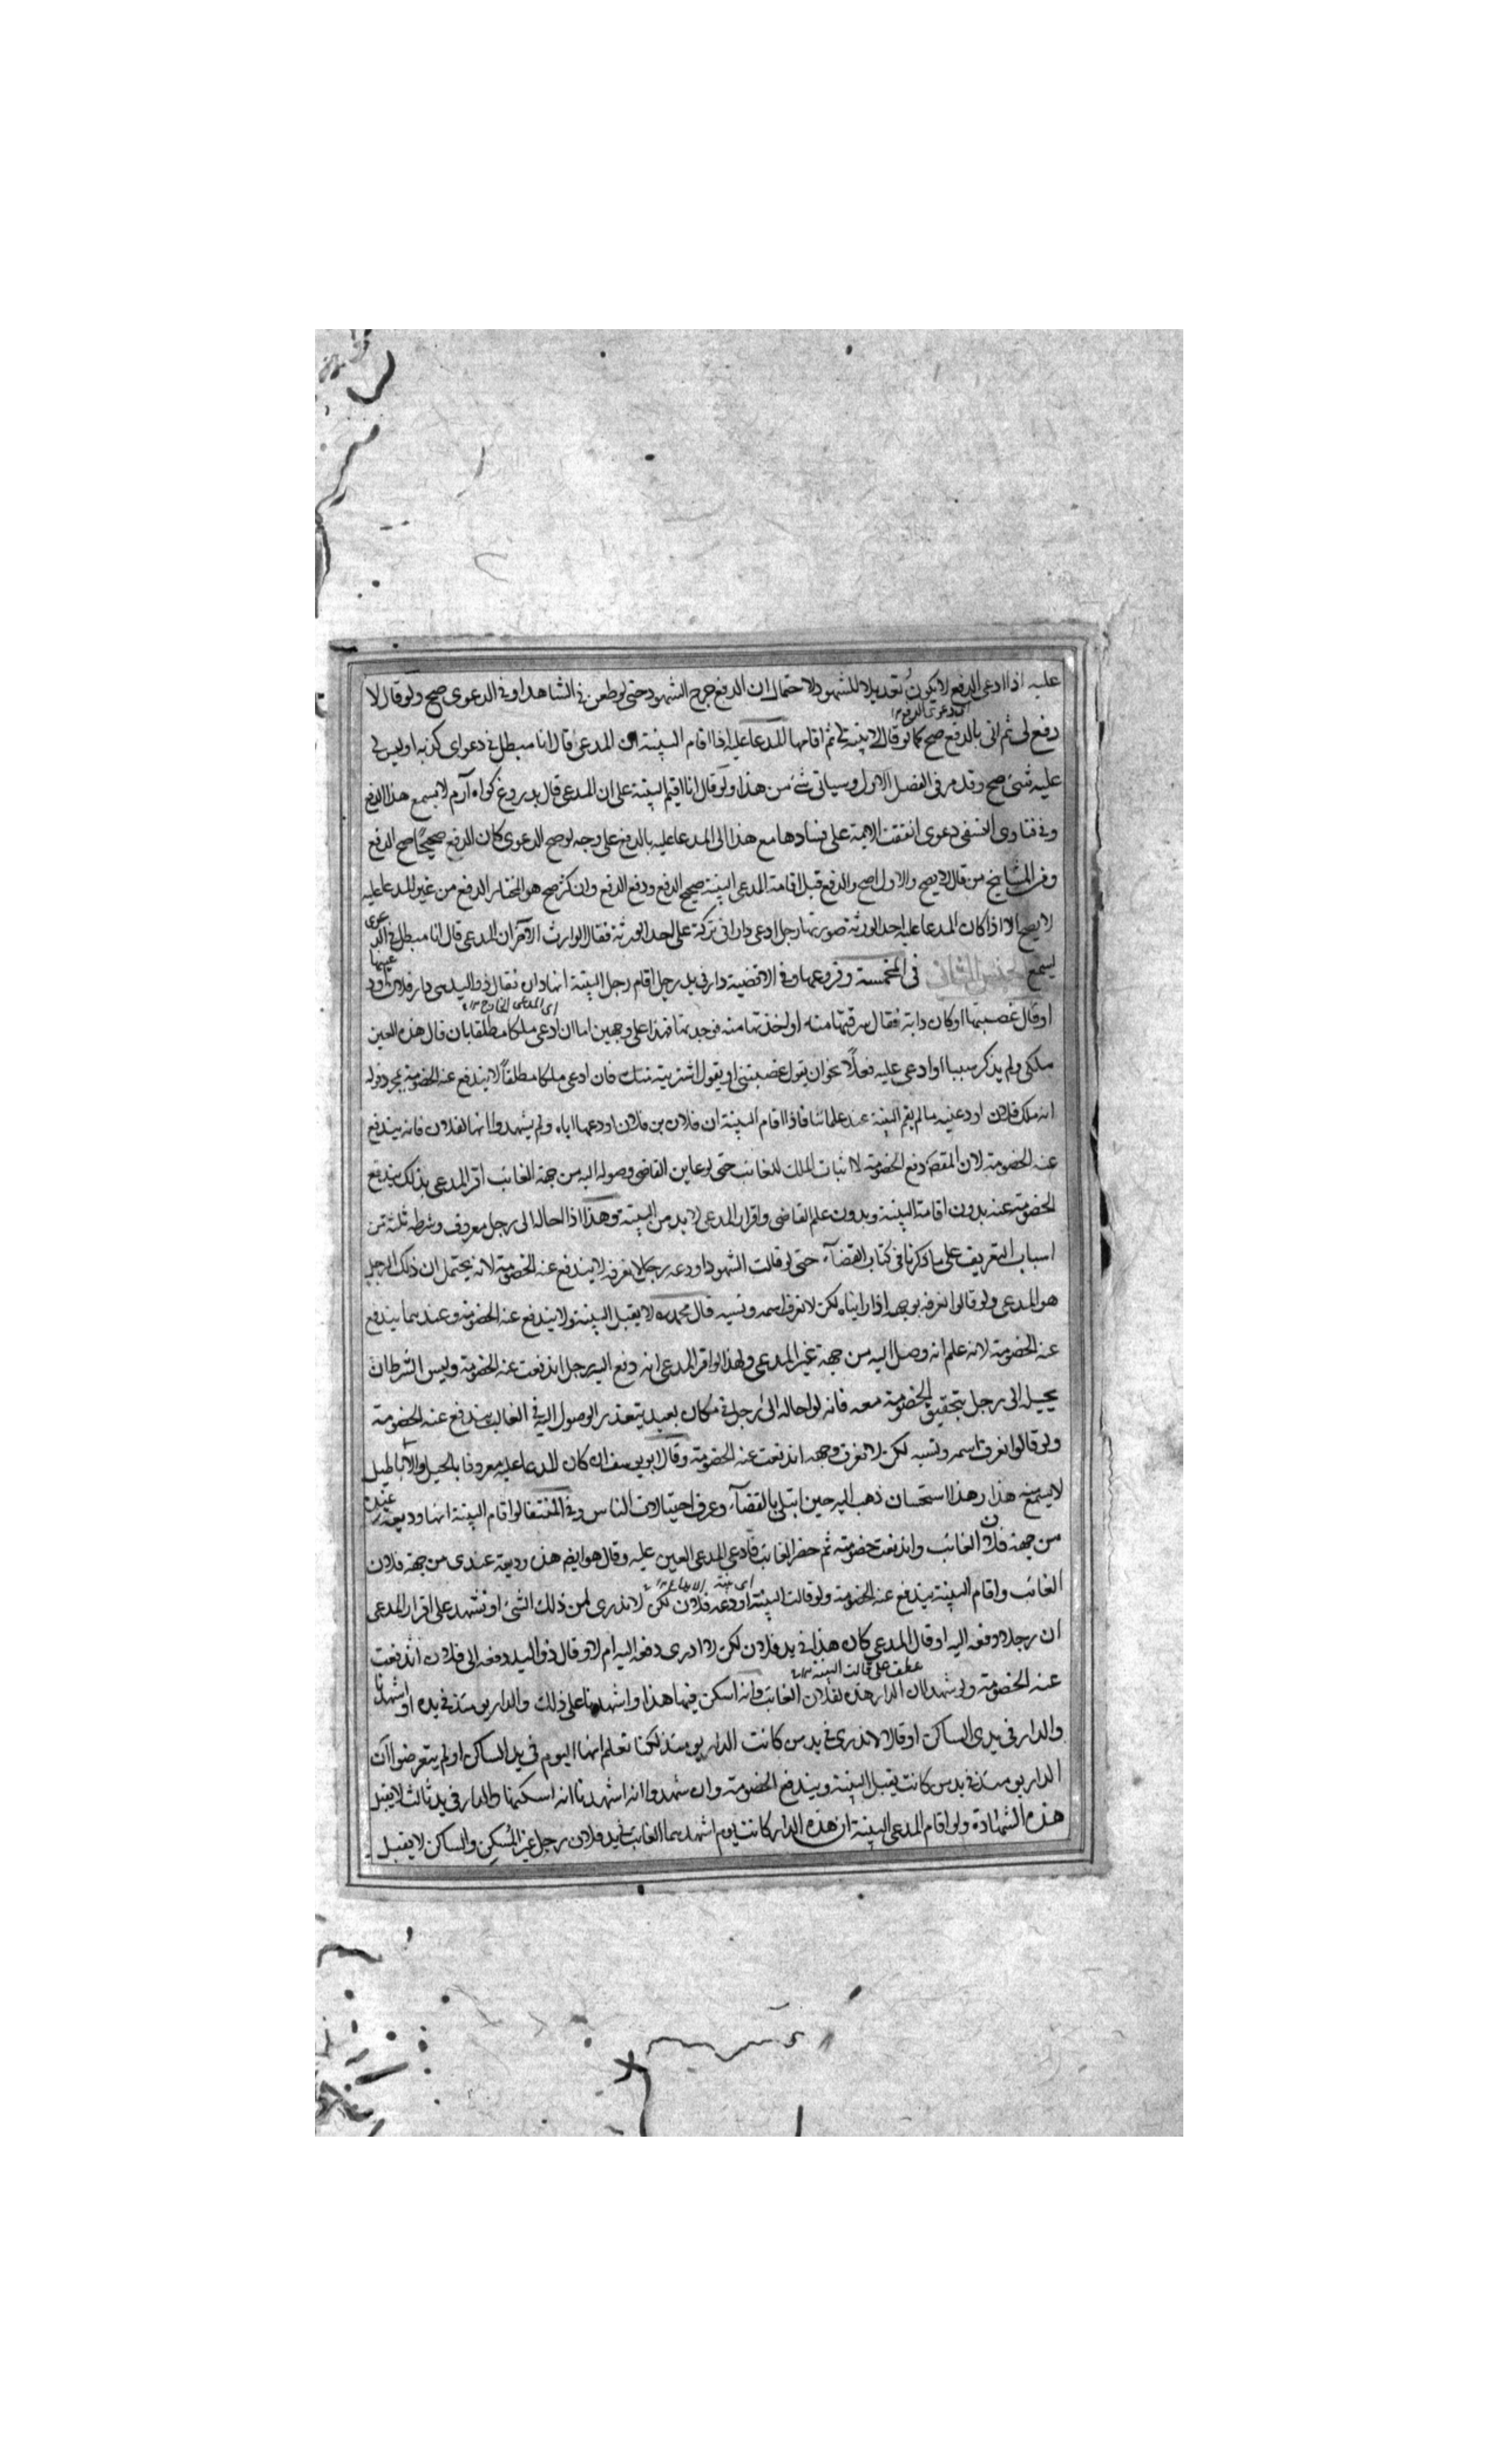 عليه اذا ادعى الدفع لا يكون تعديلا للشهود لاحتمال ان الدفع جرح الشهود حتى لو طعن فى الشاهد او فى الدعوى صح ولو قال لا
دفع لى ثم اتى بالدفع صح كما لو قال لا بينة لى ثم اقامها المدعا عليه اذا اقام البينة ان المدعى قال انا مبطل فى دعواى او ليس لى
عليه شئ صح وقد مر فى الفصل الاول وسياتى شئ من هذا ولو قال انا اقيم البينة على ان المدعى قال بدروغ كواه آرم لا يسمع هذا الدفع
وفى فتاوى النسفى دعوى اتفقت الايمة على فسادها مع هذا اتى المدعا عليه بالدفع على وجه لو صح الدعوى كان الدفع صحيحًا صح الدفع
ومن المشايخ من قال لا يصح والاول اصح والدفع قبل اقامة المدعى البينة صحيح الدفع ودفع الدفع وان كثر صح هو المختار الدفع من غير المدعا عليه
لا يصح الا اذا كان المدعا عليه احد الورثة صورتها رجل ادعى دارا فى تركة على احد الورثة فقال الوارث الآخر ان المدعى قال انا مبطل فى الدعوى
يسمع الجنس الثانى فى المخمسة وفروعها وفى الاقضية دار فى يد رجل اقام رجل البينة انها داره فقال ذو اليد هى دار فلان اودعنيها
اى المدعى الخارج
او قال غصبتها او كان دابة فقال سرقتها منه او اخذتها منه فوجدتها فهذا على وجهين اما ان ادعى ملكا مطلقا بان قال هذه العين
ملكى ولم يذكر سببا او ادعى عليه فعلًا نحو ان يقول غصبتنى او يقول اشتريته منك فان ادعى ملكا مطلقًا لا يندفع عنه الخصومة بمجرد قوله
انه ملك فلان اودعنيه ما لم يقم البينة عند علمائنا فاذا اقام البينة ان فلان بن فلان اودعها اياه ولم يشهدوا انها لفلان فانه يندفع
عنه الخصومة لان المقصد دفع الخصومة لا اثبات الملك للغائب حتى لو عاين القاضى وصوله اليه من جهة الغائب اقر المدعى بذلك يندفع
الخصومة عنه بدون اقامة البينة وبدون علم القاضى واقرار المدعى لا بد من البينة وهذا اذا احاله الى رجل معروف وشرطه ثلثة من
اسباب التعريف على ما ذكرنا فى كتاب القضآء حتى لو قالت الشهود اودعه رجل لا نعرفه لا يندفع عنه الخصومة لانه يحتمل ان ذلك الرجل
هو المدعى ولو قالوا نعرفه بوجهه اذا رايناه لكن لا نعرف اسمه ونسبه قال محمد ره لا يقبل البينة ولا يندفع عنه الخصومة وعندهما يندفع
عنه الخصومة لانه علم انه وصل اليه من جهة غير المدعى ولهذا لو اقر المدعى انه دفع اليه رجل اندفعت عنه الخصومة وليس الشرط ان
يحيله الى رجل يتحقق الخصومة معه فانه لو احاله الى رجل فى مكان بعيد يتعذر الوصول اليه فى الغالب يندفع عنه الخصومة
ولو قالوا نعرف اسمه ونسبه لكن لا نعرف وجهه اندفعت عنه الخصومة وقال ابو يوسف ان كان المدعا عليه معروفا بالحيل والاباطيل
لا يسمع هذا وهذا استحسان ذهب اليه حين ابتلى بالقضآء وعرف احتيالات الناس وفى المنتقى لو اقام البينة انها وديعة عنده
من جهة فلان الغائب واندفعت خصومته ثم حضر الغائب فادعى المدعى العين عليه وقال هو ايضا هذه وديعة عندى من جهة فلان
الغائب واقام البينة يندفع عنه الخصومة ولو قالت البينة اودعه فلان لكن لا ندرى لمن ذلك الشئ او نشهد على اقرار المدعى
ان رجلا دفعه اليه او قال المدعى كان هذا فى يد فلان لكن لا ادرى دفعه اليه ام لا وقال ذو اليد دفعه الى فلان اندفعت
عطف على قالت البينة
عنه الخصومة ولو شهدا ان الدار هذه لفلان الغائب وانه اسكن فيها هذا واشهدنا على ذلك والدار يومئذ فى يده او اشهدنا
والدار فى يدى الساكن او قالا لا ندرى فى يد من كانت الدار يومئذ لكنا نعلم انها اليوم فى يد الساكن او لم يتعرضوا ان
الدار يومئذ فى يد من كانت يقبل البينة ويندفع الخصومة وان شهدوا انه اشهدنا انه اسكنها والدار فى يد ثالث لا يقبل
هذه الشهادة ولو اقام المدعى البينة ان هذه الدار كانت يوم اشهدهما الغائب فى يد فلان رجل غير المُسكن والساكن لا يقبل